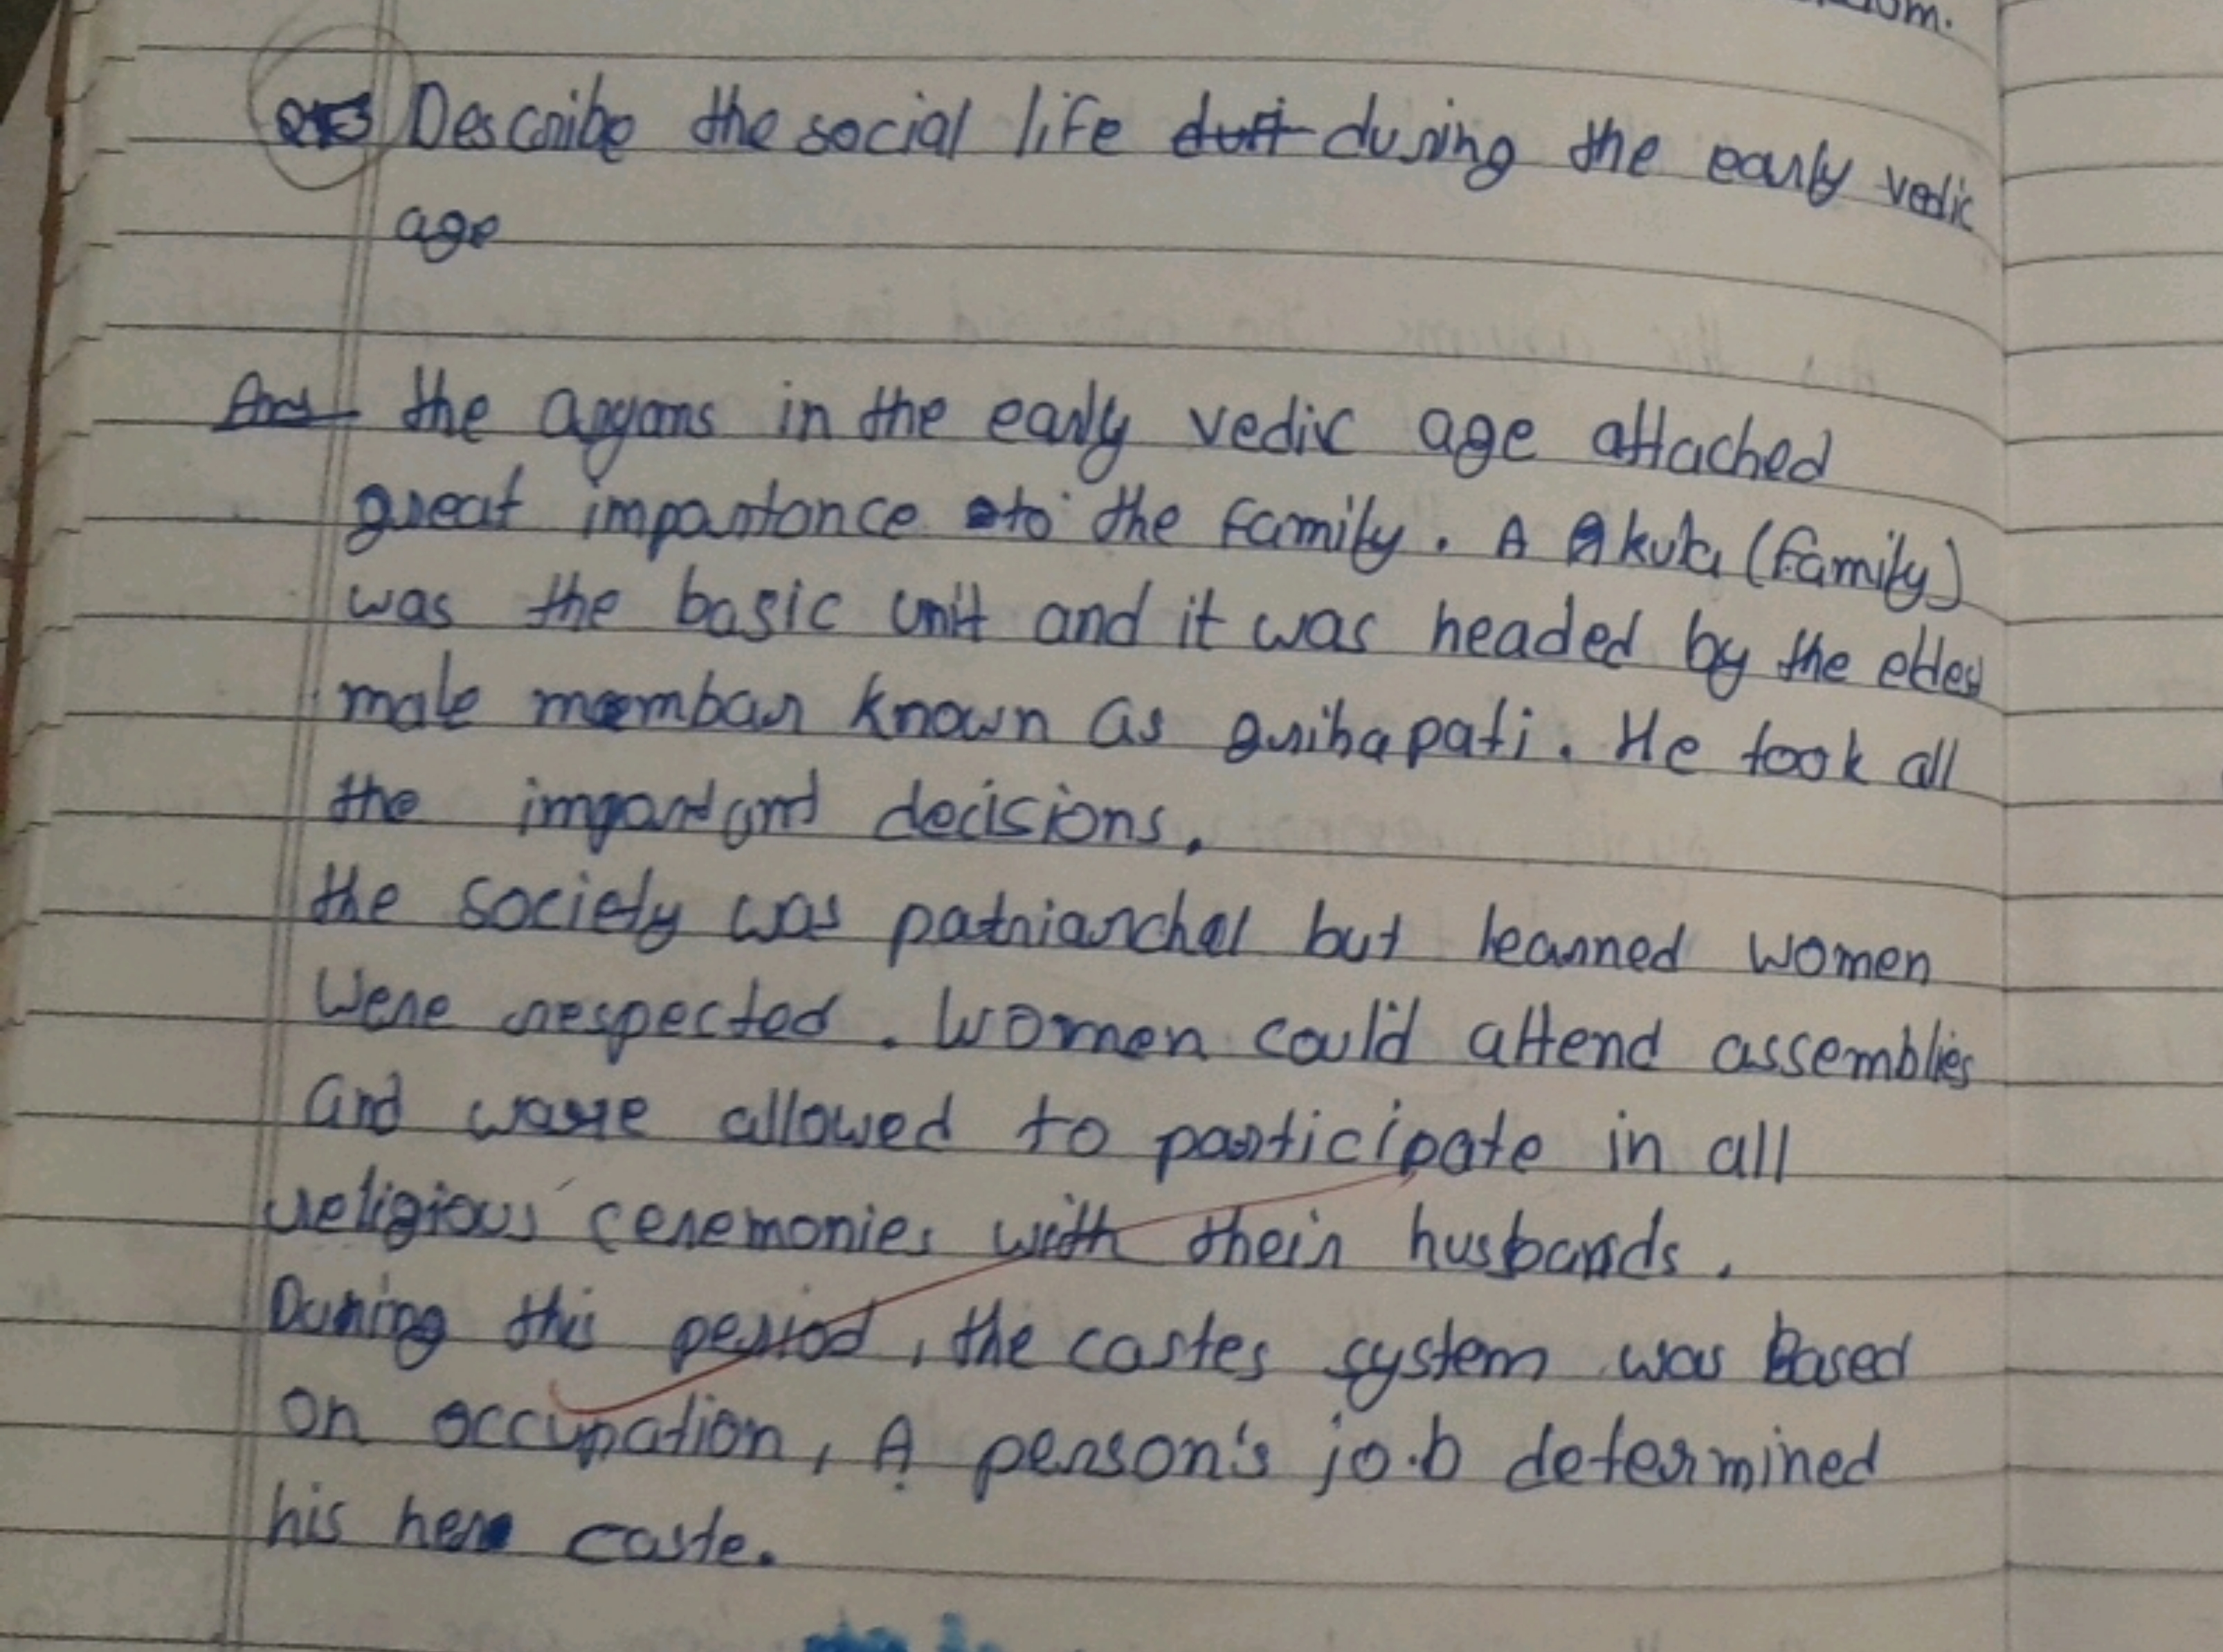 Q13 Describe the social life during the early vedic
age
Ans the aryans in the early vedic age attached
great importance to the family. A kula (family)
was the basic unit and it was headed by the eldest
male member known as grihapati. He took all
the important decisions.
the society was patriarchal but learned women
were respected. Women could attend assemblies
and were allowed to participate in all
religious ceremonies with their husbands.
During this period, the castes system was Based
on occupation, A person's job determined
his her caste.